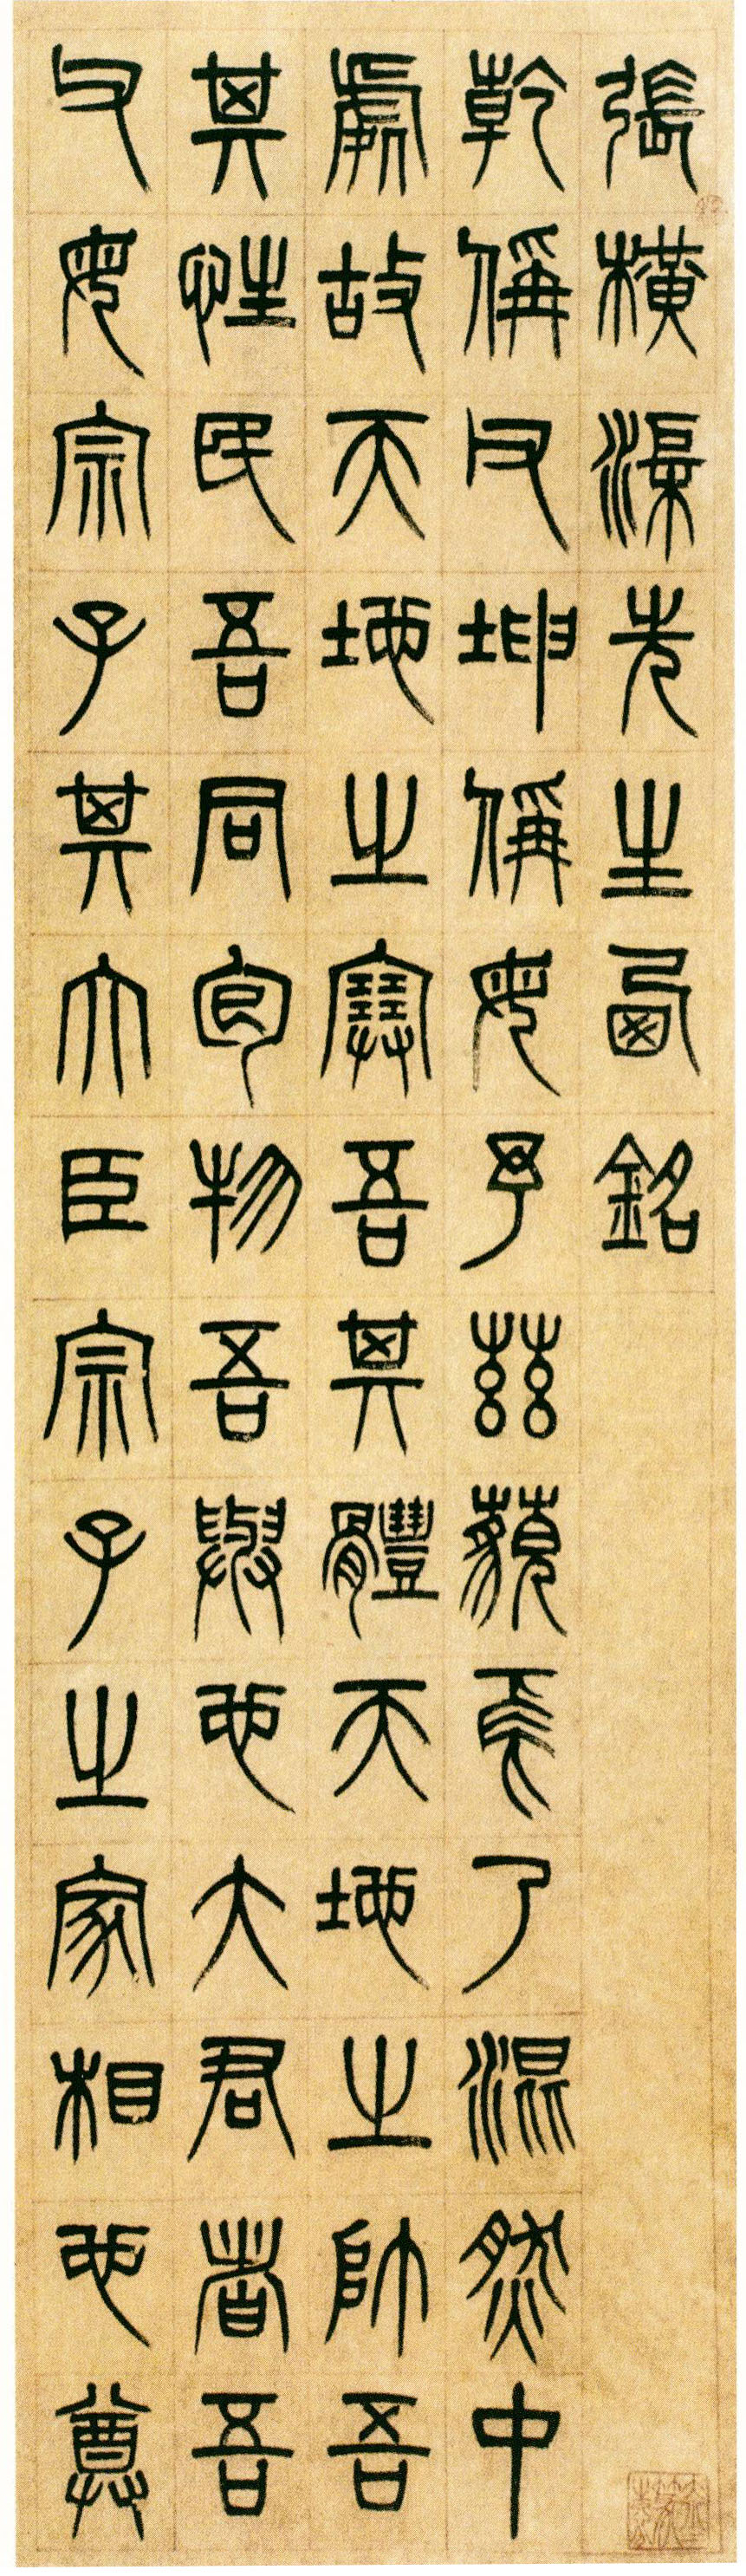 張橫渠先生西銘
乾偁父坤偁母予茲藐焉乃混然中
處故天地之塞吾其體天地之帥吾
其性民吾同胞物吾與也大君者吾
父母宗子其大臣宗子之家相也尊